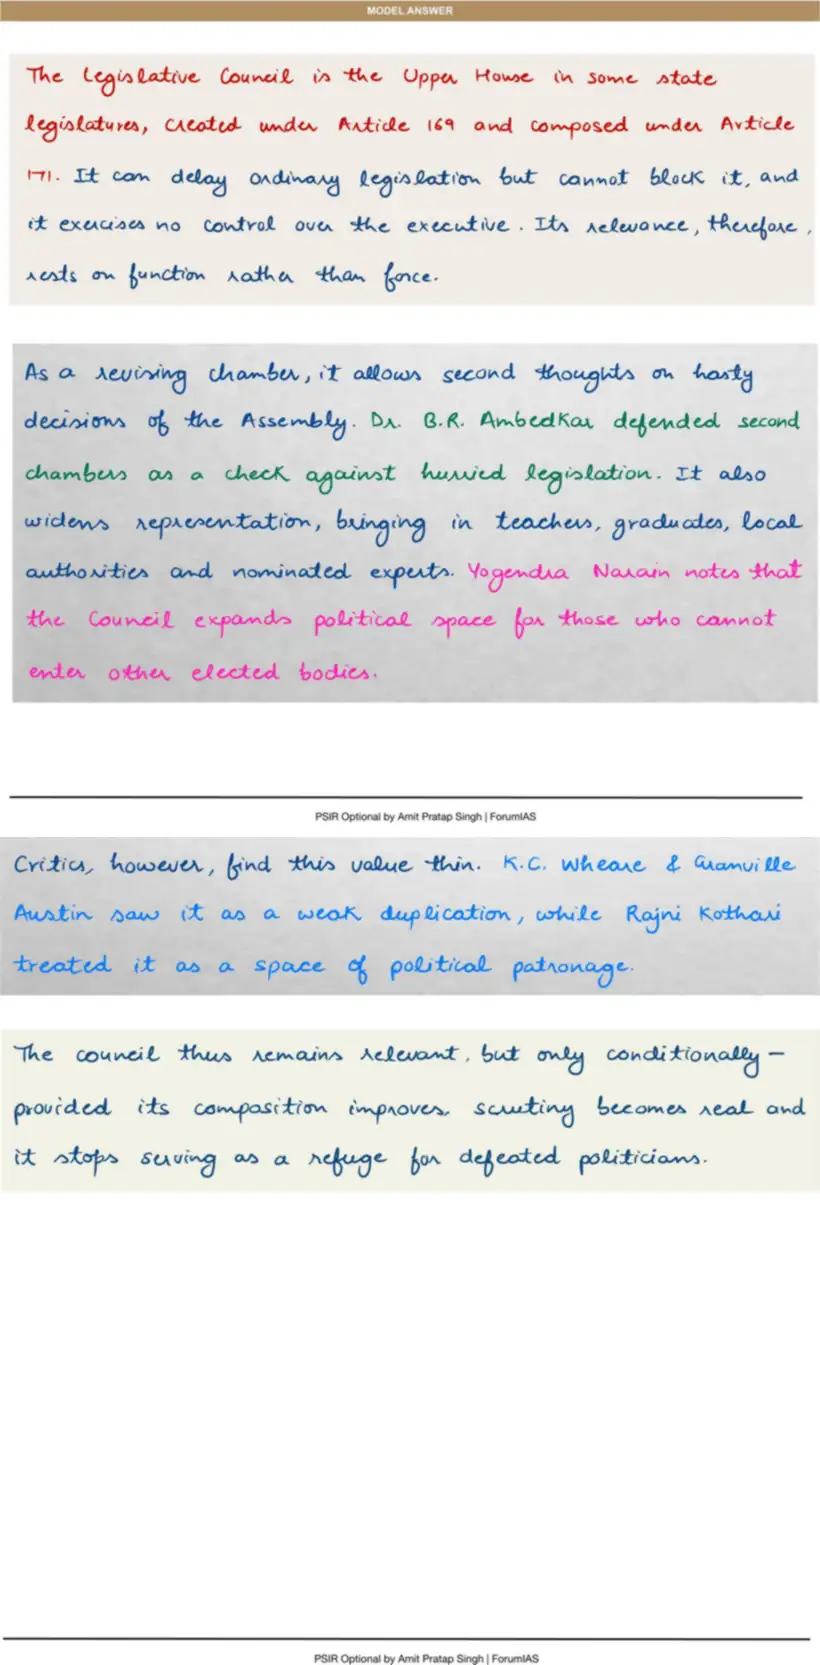 MODEL ANSWER
The Legislative Council is the Upper House in some state
legislatures, created under Article 169 and composed under Article
171. It can delay ordinary legislation but cannot block it, and
it exercises no control over the executive. Its relevance, therefore,
rests on function rather than force.
As a revising chamber, it allows second thoughts on hasty
decisions of the Assembly. Dr. B.R. Ambedkar defended second
chambers as a check against hurried legislation. It also
widens representation, bringing in teachers, graduates, local
authorities and nominated experts. Yogendra Narain notes that
the Council expands political space for those who cannot
enter other elected bodies.
PSIR Optional by Amit Pratap Singh | ForumIAS
Critics, however, find this value thin. K.C. Wheare & Granville
Austin saw it as a weak duplication, while Rajni Kothari
treated it as a space of political patronage.
The council thus remains relevant, but only conditionally –
provided its composition improves, scrutiny becomes real and
it stops serving as a refuge for defeated politicians.
PSIR Optional by Amit Pratap Singh | ForumIAS